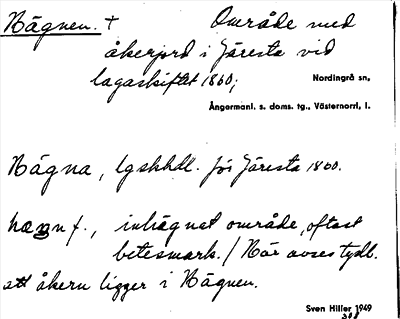 Hägnen. + Område med
åkerjord i Järesta vid
lagaskiftet 1860;
Nordingrå sn,
Ångermanl. s. doms. tg., Västernorrl, l.
Hägna, lgskhdl. för Järesta 1860.
f., inhägnat område, oftast
betesmark. / Här avses tydl.
att åkern ligger i Hägnen.
Sven Hiller 1949
308